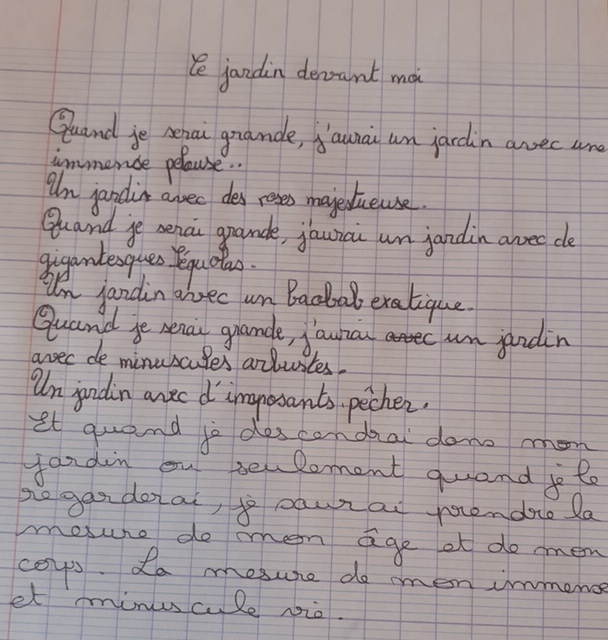 Le jardin devant moi
Quand je serai grande, j'aurai un jardin avec une
immense pelouse..
Un jardin avec des roses majestueuse.
Quand je serai grande, j'aurai un jardin avec de
gigantesques séquoias.
Un jardin avec un Baobab exotique.
Quand je serai grande, j'aurai avec un jardin
avec de minuscules arbustes.
Un jardin avec d'imposants pêcher.
Et quand je descendrai dans mon
jardin ou seulement quand je le
regarderai, je saurai prendre la
mesure de mon âge et de mon
corps. La mesure de mon immense
et minuscule vie.